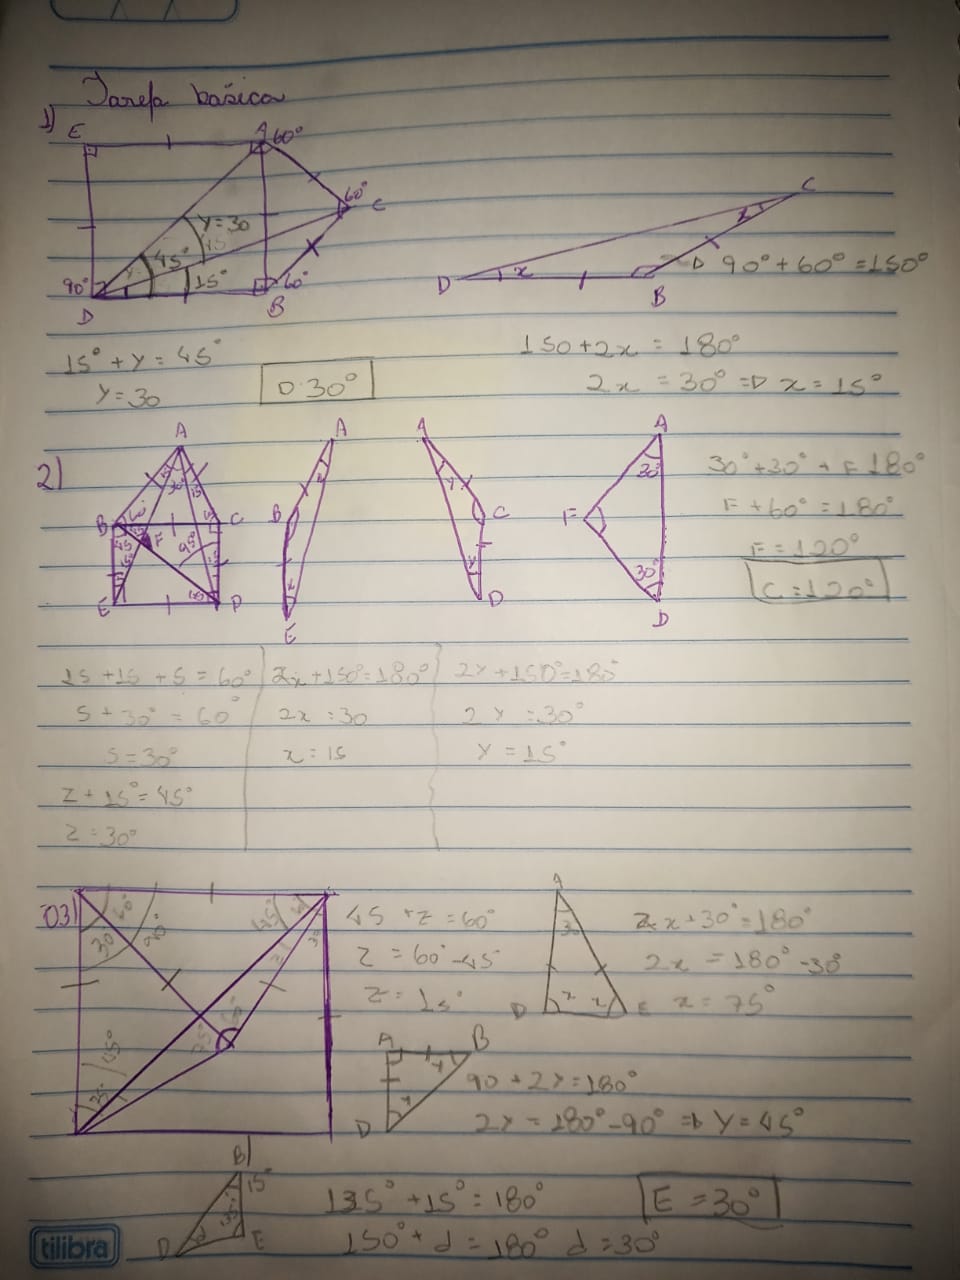 Tarefa básica
1)
E
A 60°
60°
C
y=30
15
45°
15°
90°
D
60°
B
C
x
D
x
B
90°+60°=150°
15°+y=45°
y=30
D.30°
150+2x=180°
2x=30° => x=15°
2)
A
15
30°
15
B
60°
C
45
F
45°
E
D
A
x
B
x
E
A
y
C
y
D
A
30°
F
30°
D
30°+30°+F 180°
F+60°=180°
F=120°
C=120°
15+15+S=60°
S+30°=60°
S=30°
Z+15°=45°
Z=30°
2x+150°=180°
2x:30
x:15
2y+150°=180°
2y=30°
y=15°
03)
60°
30
90°
45°
30
60°
75°
45°
45+Z=60°
Z=60°-45
Z=15°
A
30
D
x
x
E
2x+30°=180°
2x=180°-30°
x=75°
A
B
y
y
D
90+2y=180°
2y=180°-90° => y=45°
B
15°
135°
D
d
E
135°+15°=180°
150°+d=180° d=30°
E=30°
tilibra